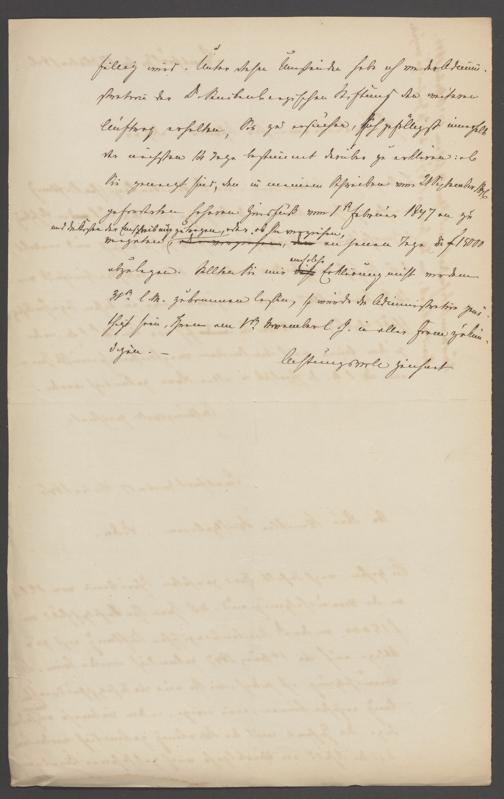 fällig wird. Unter diesen Umständen habe ich von der Admini-
stration der Dr. Senckenbergischen Stiftung den weiteren
Auftrag erhalten, Sie zu ersuchen, sich gefälligst innerhalb
der nächsten 14 Tage bestimmt darüber zu erklären: ob
Sie geneigt sind, den in meinem Schreiben vom 21 September
geforderten höheren Zinsfuß vom 1n Februar 1847 an zu
und die Kosten der Umschreibung zu tragen, oder, ob Sie vorziehen,
vergüten, an jenem Tage die f 15000
abzulegen. Sollten Sie mir solche Erklärung nicht vor dem
31n l. M. zukommen lassen, so würde die Administration
sein, Ihnen am 1n November l. J. in aller Form zu kün-
digen. –
Achtungsvoll zeichnet